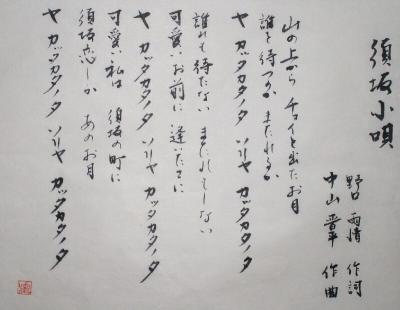 須坂小唄
野口雨情 作詞
中山晋平 作曲
山の上から チョイと出たお月
誰を待つのか またれるか
ヤ カッタカタノタ ソリヤ カッタカタノタ
誰れも待たない またれもしない
可愛いお前に 逢いたさに
ヤ カッタカタノタ ソリヤ カッタカタノタ
可愛い私は 須坂の町に
須坂恋しか あのお月
ヤ カッタカタノタ ソリヤ カッタカタノタ